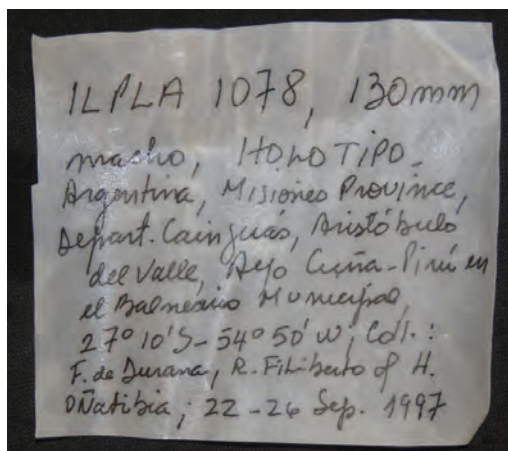 ILPLA 1078, 130mm
macho, HOLOTIPO.
Argentina, Misiones Province,
Depart. Cainguás, Aristóbulo
del Valle, Ayo Cuña-Pirú en
el Balneario Municipal,
27º 10'S-54º 50'W; Coll.:
F. de Durana, R. Filiberto & H.
Oñatibia; 22-26 Sep. 1997